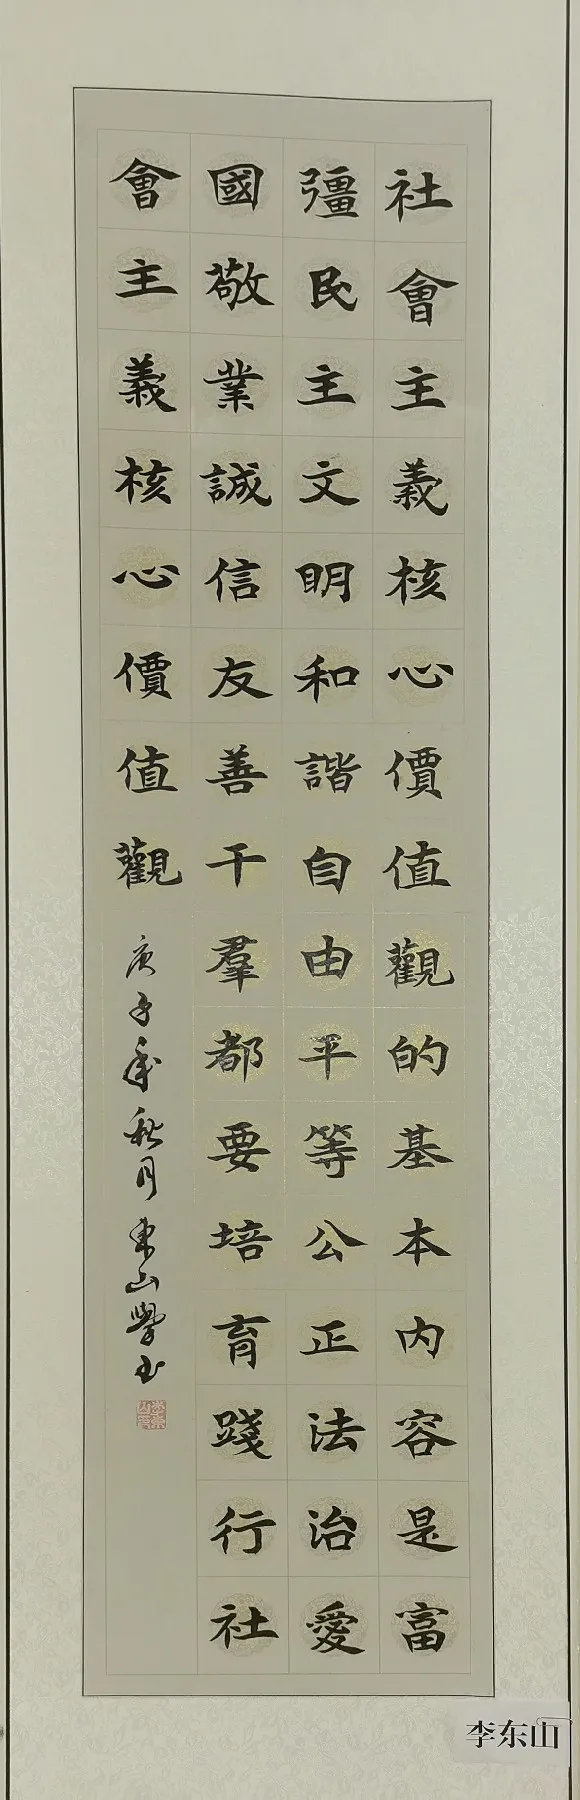 社會主義核心價值觀的基本内容是富
彊民主文明和諧自由平等公正法治愛
國敬業誠信友善干羣都要培育踐行社
會主義核心價值觀
庚子年秋月東山學书
李东山